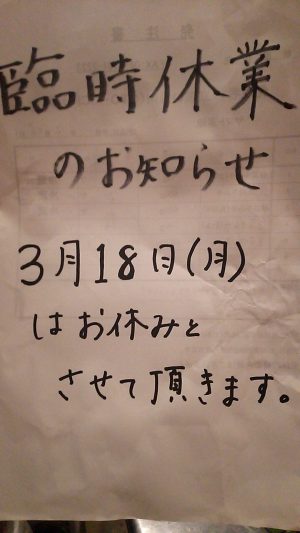 臨時休業
のお知らせ
3月18日(月)
はお休みと
させて頂きます。